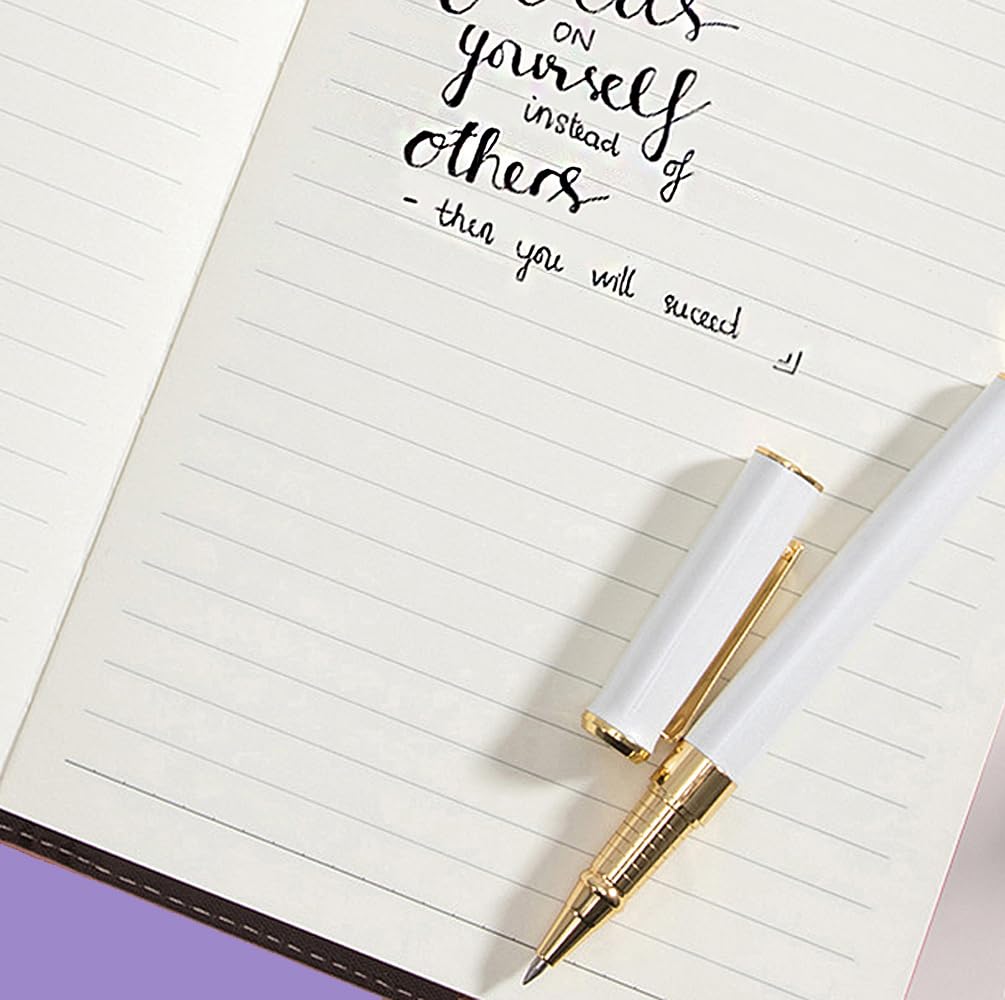 ON
yourself
instead of
others
- then you will suceed